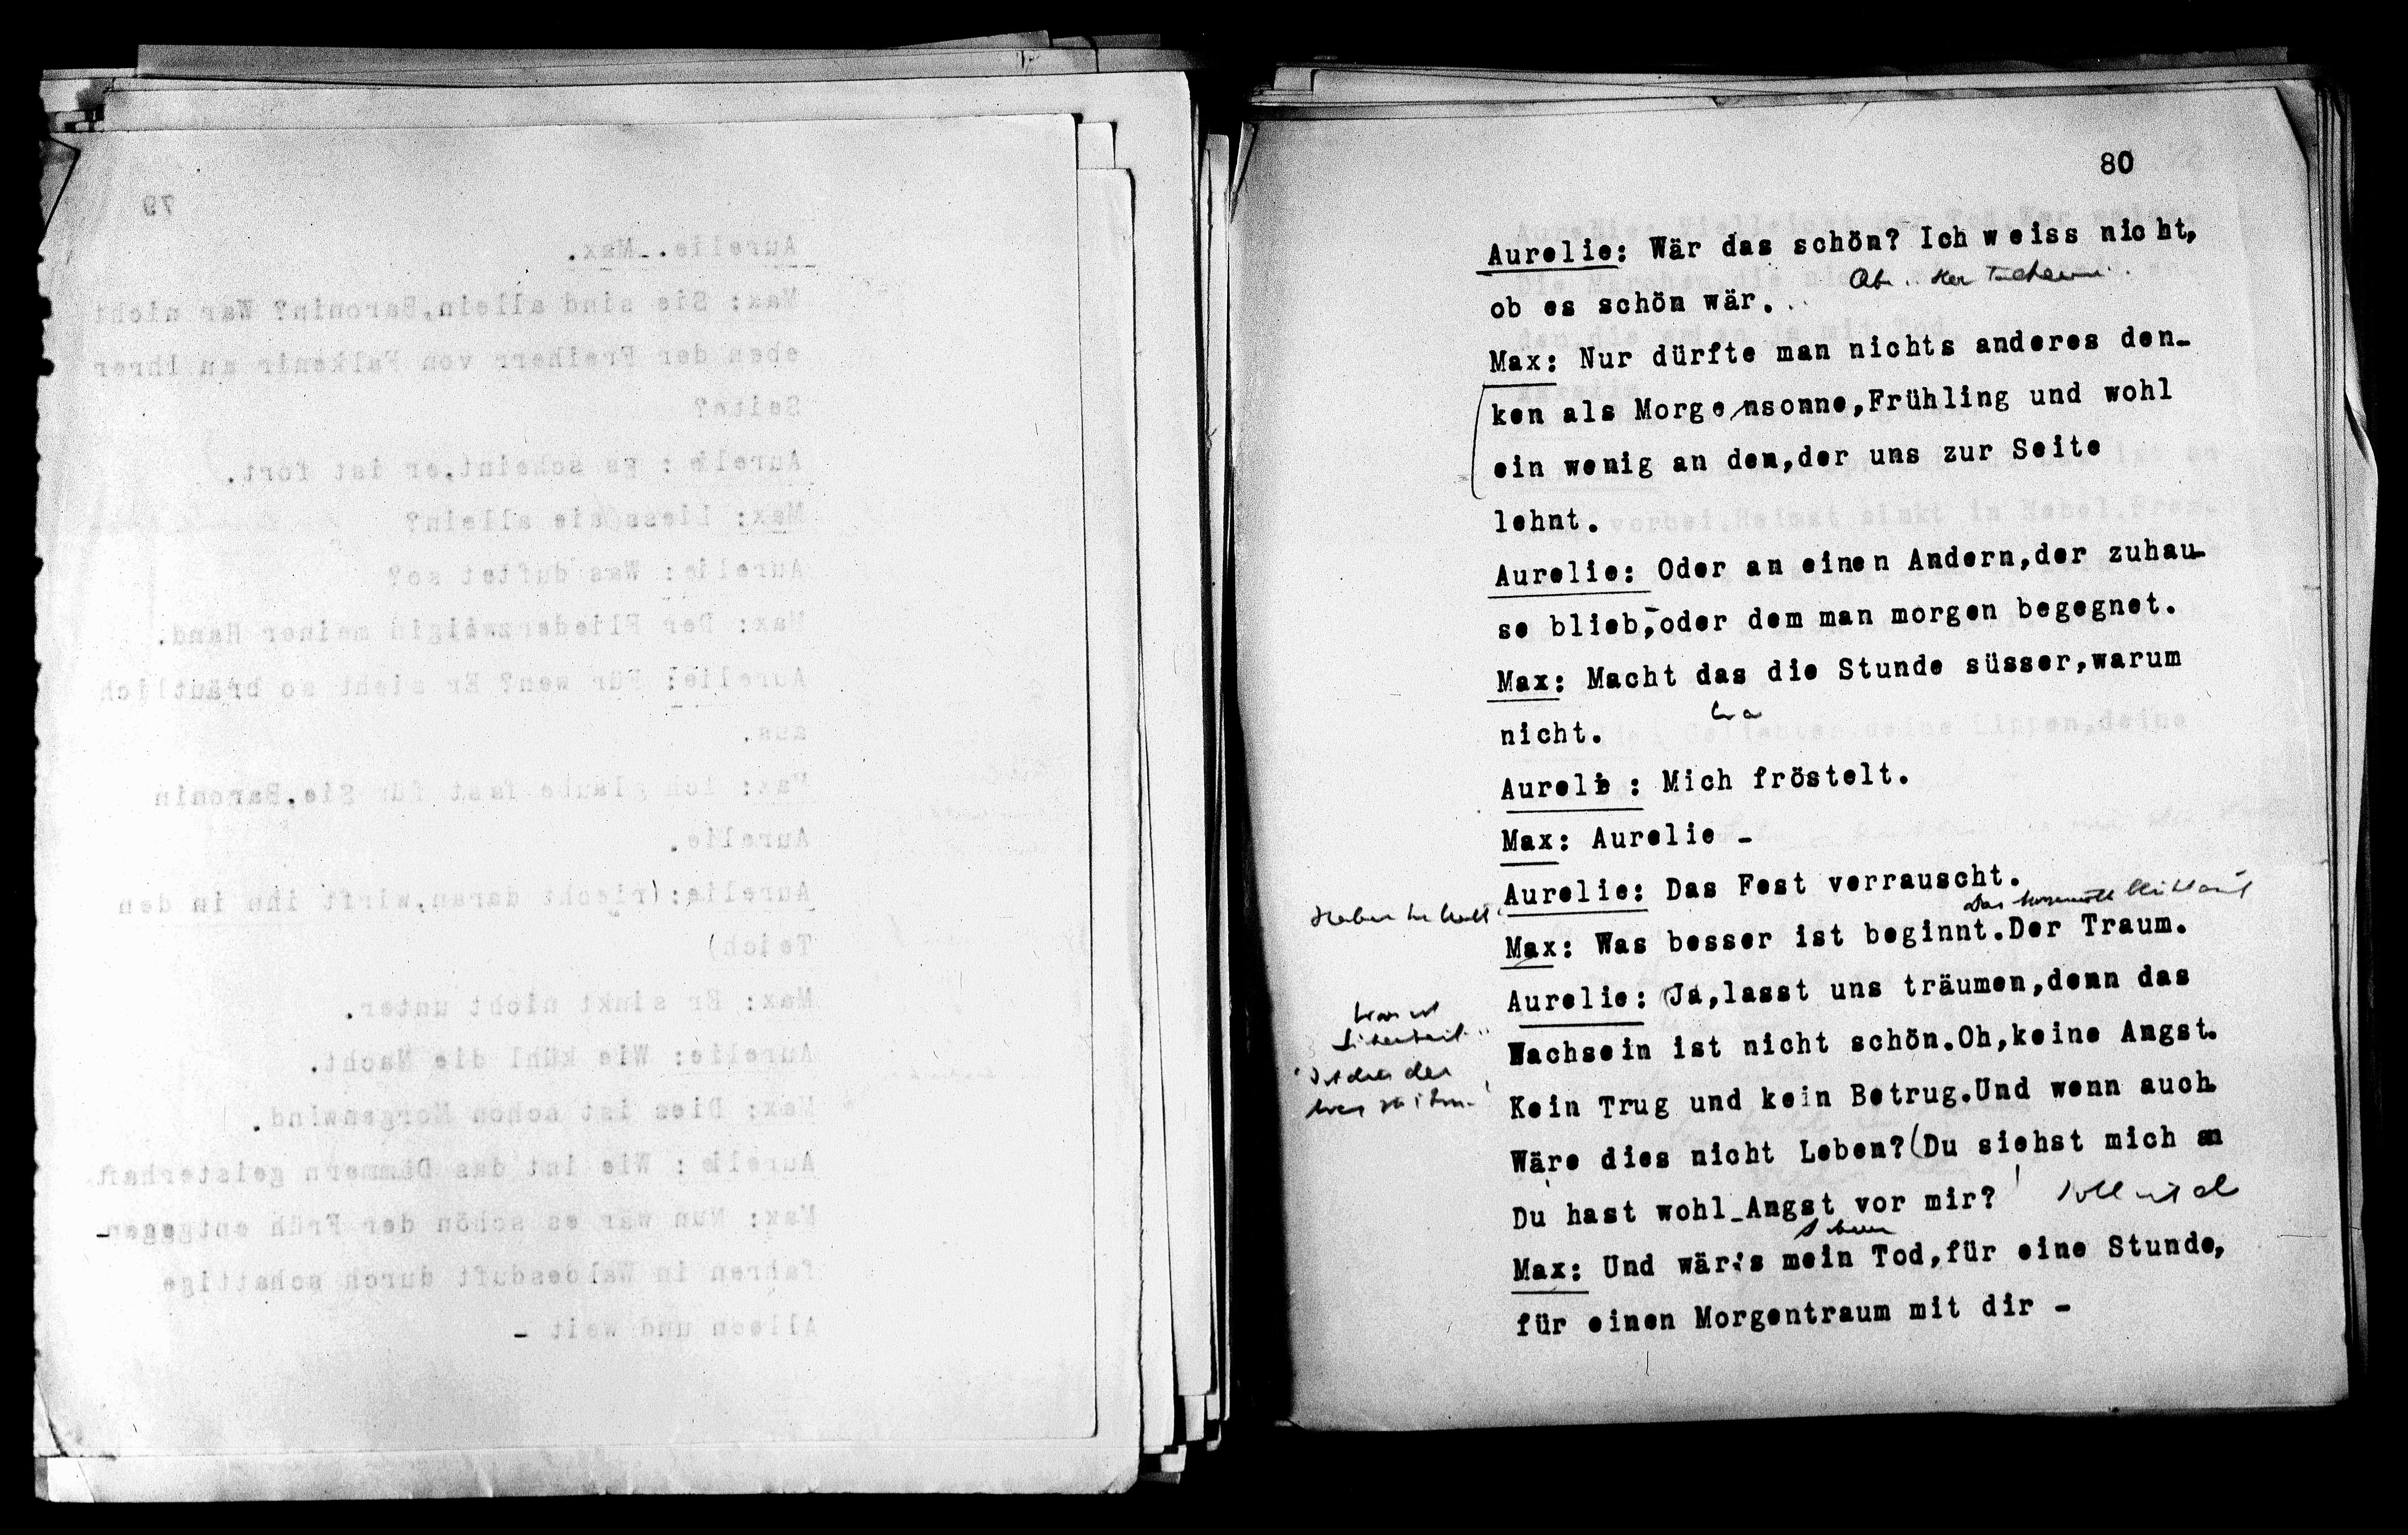 79
Aurelie. Max.
Max: Sie sind allein,Baronin? War nicht
eben der Freiherr von Falkenir an Ihrer
Seite?
Aurelie: Es scheint,er ist fort.
Max: Liess Sie allein?
Aurelie: Was duftet so?
Max: Der Fliederzweig in meiner Hand.
Aurelie: Für wen? Er sieht so bräutlich
aus.
Max: Ich glaube fast für Sie,Baronin
Aurelie.
Aurelie:(riecht daran,wirft ihn in den
Teich)
Max: Er sinkt nicht unter.
Aurelie: Wie kühl die Nacht.
Max: Dies ist schon Morgenwind.
Aurelie: Wie ist das Dämmern geisterhaft.
Max: Nun wär es schön der Früh entgegen-
fahren in Waldesduft durch schattige
Alleen und weit -
80
Aurelie: Wär das schön? Ich weiss nicht,
ob es schön wär..
Max: Nur dürfte man nichts anderes den-
ken als Morgensonne,Frühling und wohl
ein wenig an den,der uns zur Seite
lehnt.
Aurelie: Oder an einen Andern,der zuhau-
se blieb,oder dem man morgen begegnet.
Max: Macht das die Stunde süsser,warum
nicht.
Aurelie : Mich fröstelt.
Max: Aurelie -
Aurelie: Das Fest verrauscht.
Max: Was besser ist beginnt.Der Traum.
Aurelie: (Ja,lasst uns träumen,denn das
Wachsein ist nicht schön.Oh,keine Angst.
Kein Trug und kein Betrug.Und wenn auch
Wäre dies nicht Leben?(Du siehst mich an
Du hast wohl Angst vor mir?
Max: Und wär's mein Tod,für eine Stunde,
für einen Morgentraum mit dir -